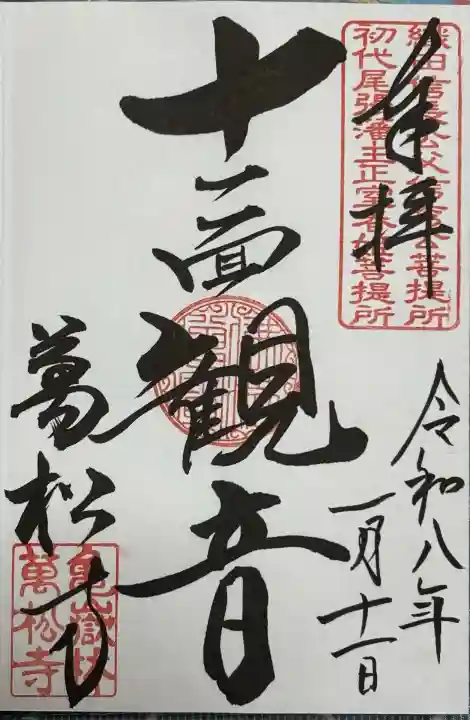 奉拝
織田信長公父信秀公菩提所
初代尾張藩主正室春姫菩提所
十一面観音
令和八年
一月十一日
萬松寺
亀嶽林
萬松寺